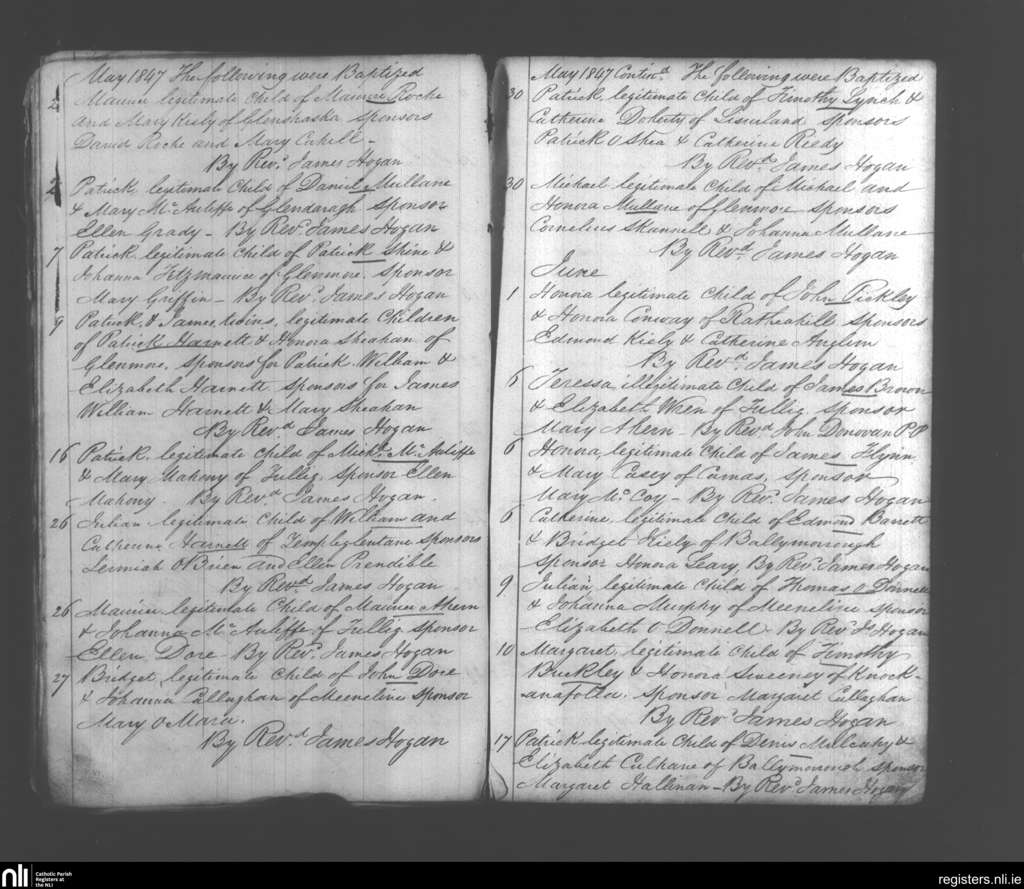 May 1847 The following were Baptized
2 Maurice legitimate Child of Maurice Roche
and Mary Kiely of Glenshaska sponsors
David Roche and Mary Cahill -
By Revd. James Hogan
2 Patrick, legitimate Child of Daniel Mullane
& Mary Mc Auliffe of Glendaragh Sponsor
Ellen Grady - By Revd. James Hogan
7 Patrick legitimate Child of Patrick Shine &
Johanna Fitzmaurice of Glenmore, Sponsor
Mary Griffin - By Revd. James Hogan
9 Patrick & James, twins, legitimate Children
of Patrick Harnett & Honora Sheahan of
Glenmore, Sponsors for Patrick William &
Elizabeth Harnett Sponsors for James
William Harnett & Mary Sheahan
By Revd. James Hogan
16 Patrick legitimate Child of Michl. Mc Auliffe
& Mary Mahony of Tullig, Sponsor Ellen
Mahony. By Revd James Hogan.
26 Julian legitimate Child of William and
Catherine Harnett of Templeglentane Sponsors
Jermiah O Brien and Ellen Prendible
By Revd. James Hogan
26 Maurice legitimate Child of Maurice Ahern
& Johanna Mc Auliffe of Tullig Sponsor
Ellen Dore - By Revd. James Hogan
27 Bridget, legitimate Child of John Dore
& Johanna Callaghan of Meeneline Sponsor
Mary O Mara.
By Revd. James Hogan
May 1847 Contind. The following were Baptized
30 Patrick, legitimate Child of Timothy Lynch &
Catherine Doherty of Sponsors
Patrick O Shea & Catherine Reedy
By Revd. James Hogan
30 Michael legitimate Child of Michael and
Honora Mullane of Glenmore Sponsors
Cornelius Shannell & Johanna Mullane
By Revd. James Hogan
June
1 Honora legitimate Child of John
& Honora Conway of Rathcahill Sponsors
Edmond Kiely & Catherine Anglim
By Revd. James Hogan
6 Teressa, illigitimate Child of James Brown
& Elizabeth Wren of Tullig Sponsor
Mary Ahern - By Revd. John Donovan PP
6 Honora, legitimate Child of James Flynn
& Mary Casey of Camas, Sponsor
Mary Mc Coy - By Revd. James Hogan
6 Catherine, legitimate Child of Edmond Barrett
& Bridget Kiely of Ballymorrough
Sponsor Honora Leary, By Revd. James Hogan
9 Julian, legitimate Child of Thomas O Donnell
& Johanna Murphy of Meeneline Sponsor
Elizabeth O Donnell - By Revd. Js Hogan
10 Margaret, legitimate Child of Timothy
Buckley & Honora Sweeney of Knock-
-anafolda. Sponsor Margaret Callaghan
By Revd. James Hogan
17 Patrick legitimate Child of Denis Mulcahy &
Elizabeth Culhane of Ballymorough Sponsor
Margaret Hallinan - By Revd. James Hogan
nli Catholic Parish
Registers at
the NLI
registers.nli.ie